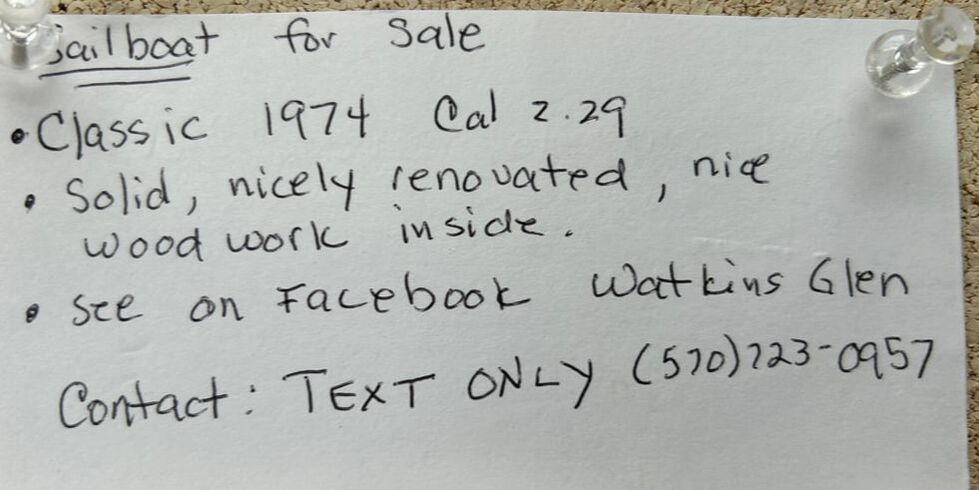 Sailboat for Sale
• Classic 1974 Cal 2.29
• Solid, nicely renovated, nice
wood work inside.
• see on Facebook Watkins Glen
Contact: TEXT ONLY (570)723-0957